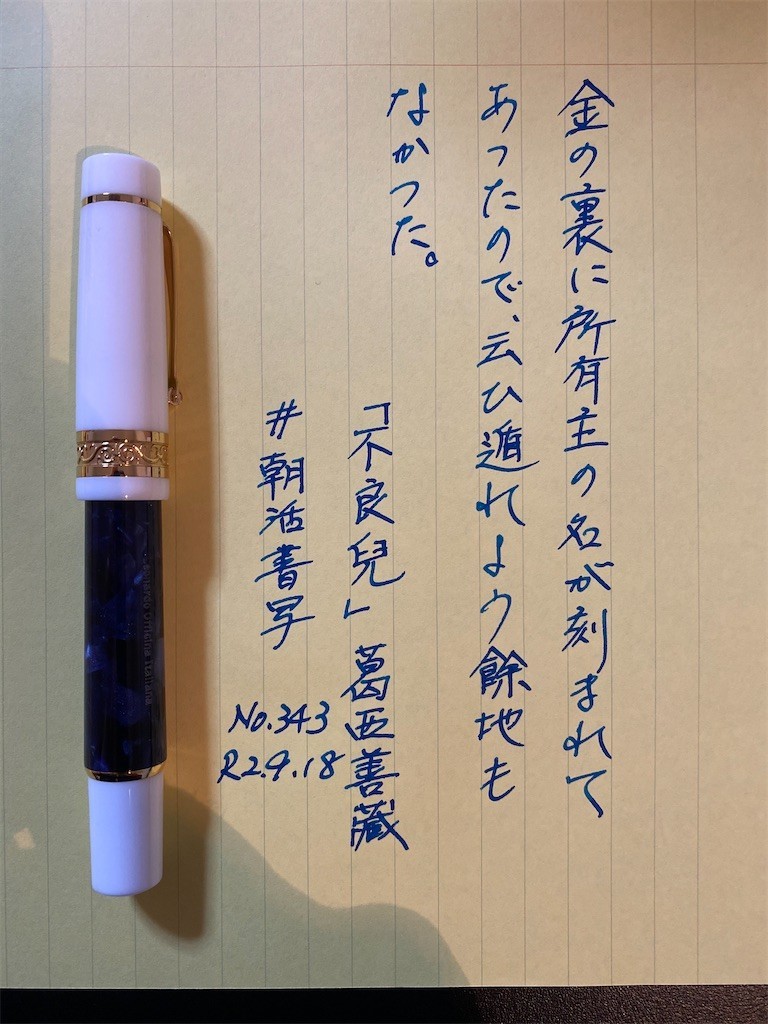 金の裏に所有主の名が刻まれて
あったので、云ひ遁れよう餘地も
なかつた。
「不良兒」 葛西善藏
#朝活書写
No.343
R2.9.18
Officina Italiana